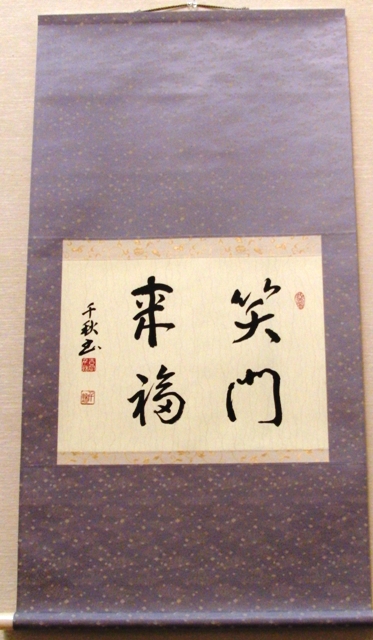 笑門
来福
千秋書